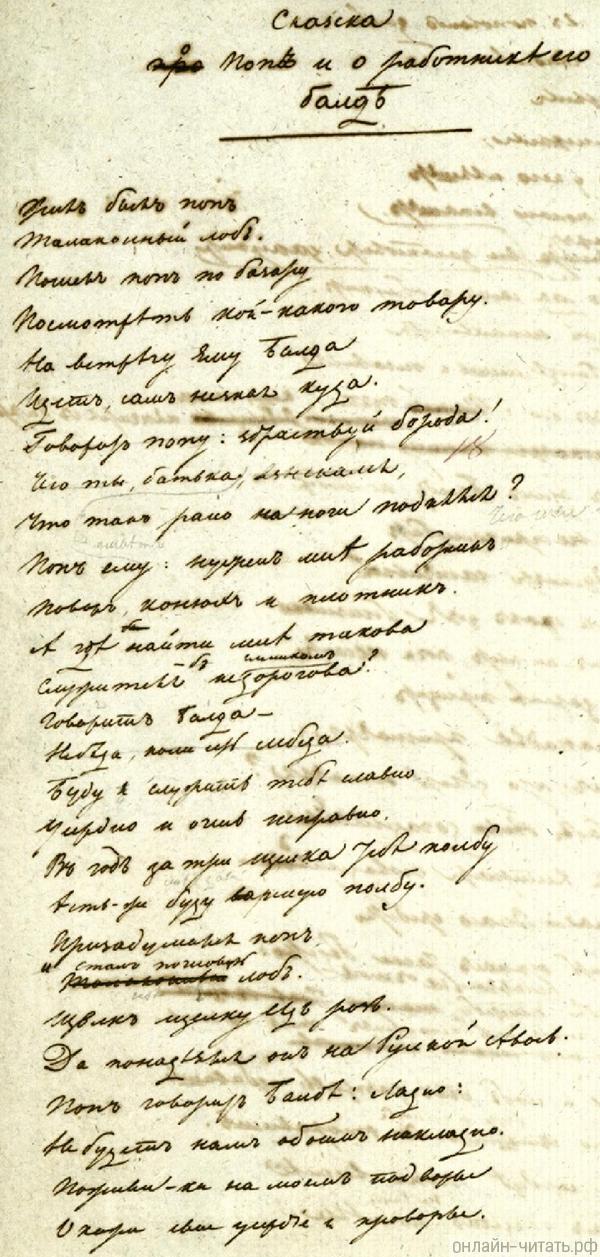 Сказка
про о Попѣ и о работникѣ его
Балдѣ
Жилъ былъ попъ
Толоконный лобъ.
Пошелъ попъ по базару
Посмотрѣть кой-какого товару.
На встрѣчу ему Балда
Идетъ, самъ не зная куда.
Говоритъ попу: здраствуй борода!
Что ты, батька,
Что такъ рано на ноги поднялся?
Попъ ему: нуженъ мнѣ работникъ
Поваръ, конюхъ и плотникъ.
А гдѣ бы найти мнѣ такова
Служителя бъ не слишкомъ дорогова?
Говоритъ Балда —
Не бѣда,
Буду я служить тебѣ славно
Усердно и очень исправно.
Въ годъ за три щелка тебѣ по лбу
Ѣсть-же буду вареную полбу.
Призадумался попъ
и сталъ почесывать лобъ.
Щелкъ щелку вѣдь розь.
Да понадѣялся онъ на Русской авось.
Попъ говоритъ Балдѣ: Ладно:
Не будетъ намъ обоимъ накладно.
Поживи-ка на моемъ подворьѣ
Окажи свое усердіе и проворье.
онлайн-читать.рф